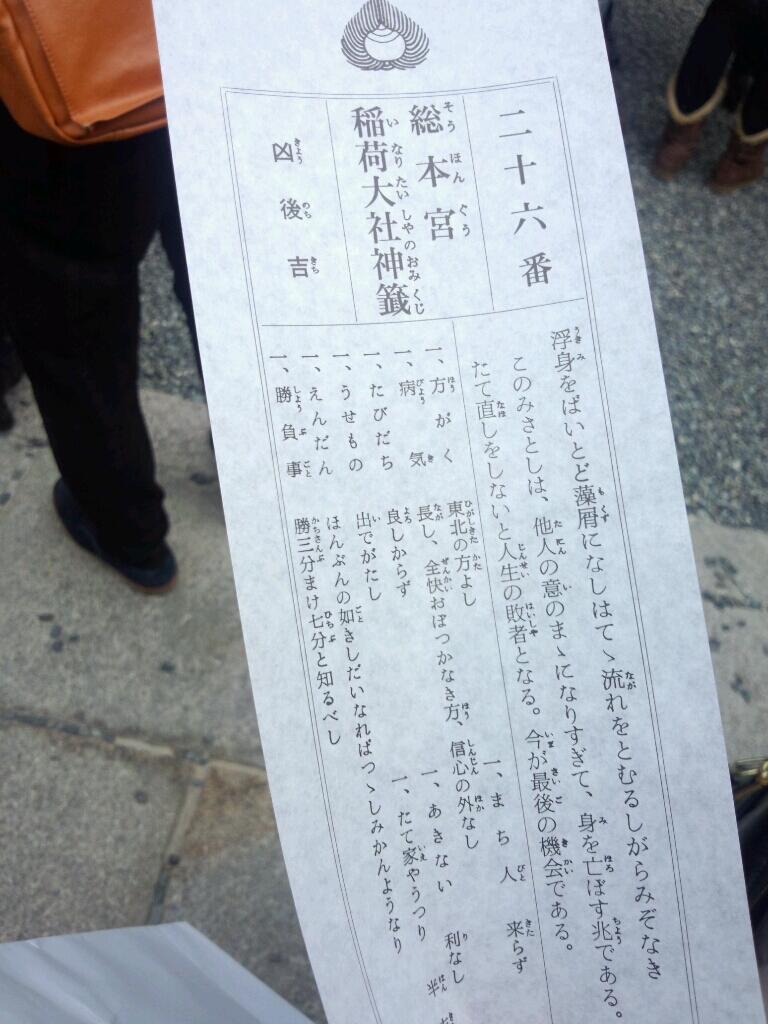 二十六番
総本宮
稲荷大社神籤
凶後吉
浮身をばいとど藻屑になしはてゝ流れをとむるしがらみぞなき
このみさとしは、他人の意のまゝになりすぎて、身を亡ぼす兆である。
たて直しをしないと人生の敗者となる。今が最後の機会である。
一、方がく 東北の方よし
一、まち人 来らず
一、病気 長し、全快おぼつかなき方、信心の外なし
一、たびだち 良しからず
一、あきない 利なし
一、うせもの 出でがたし
一、たて家やうつり 半
一、えんだん ほんぶんの如きしだいなればつゝしみかんようなり
一、勝負事 勝三分まけ七分と知るべし